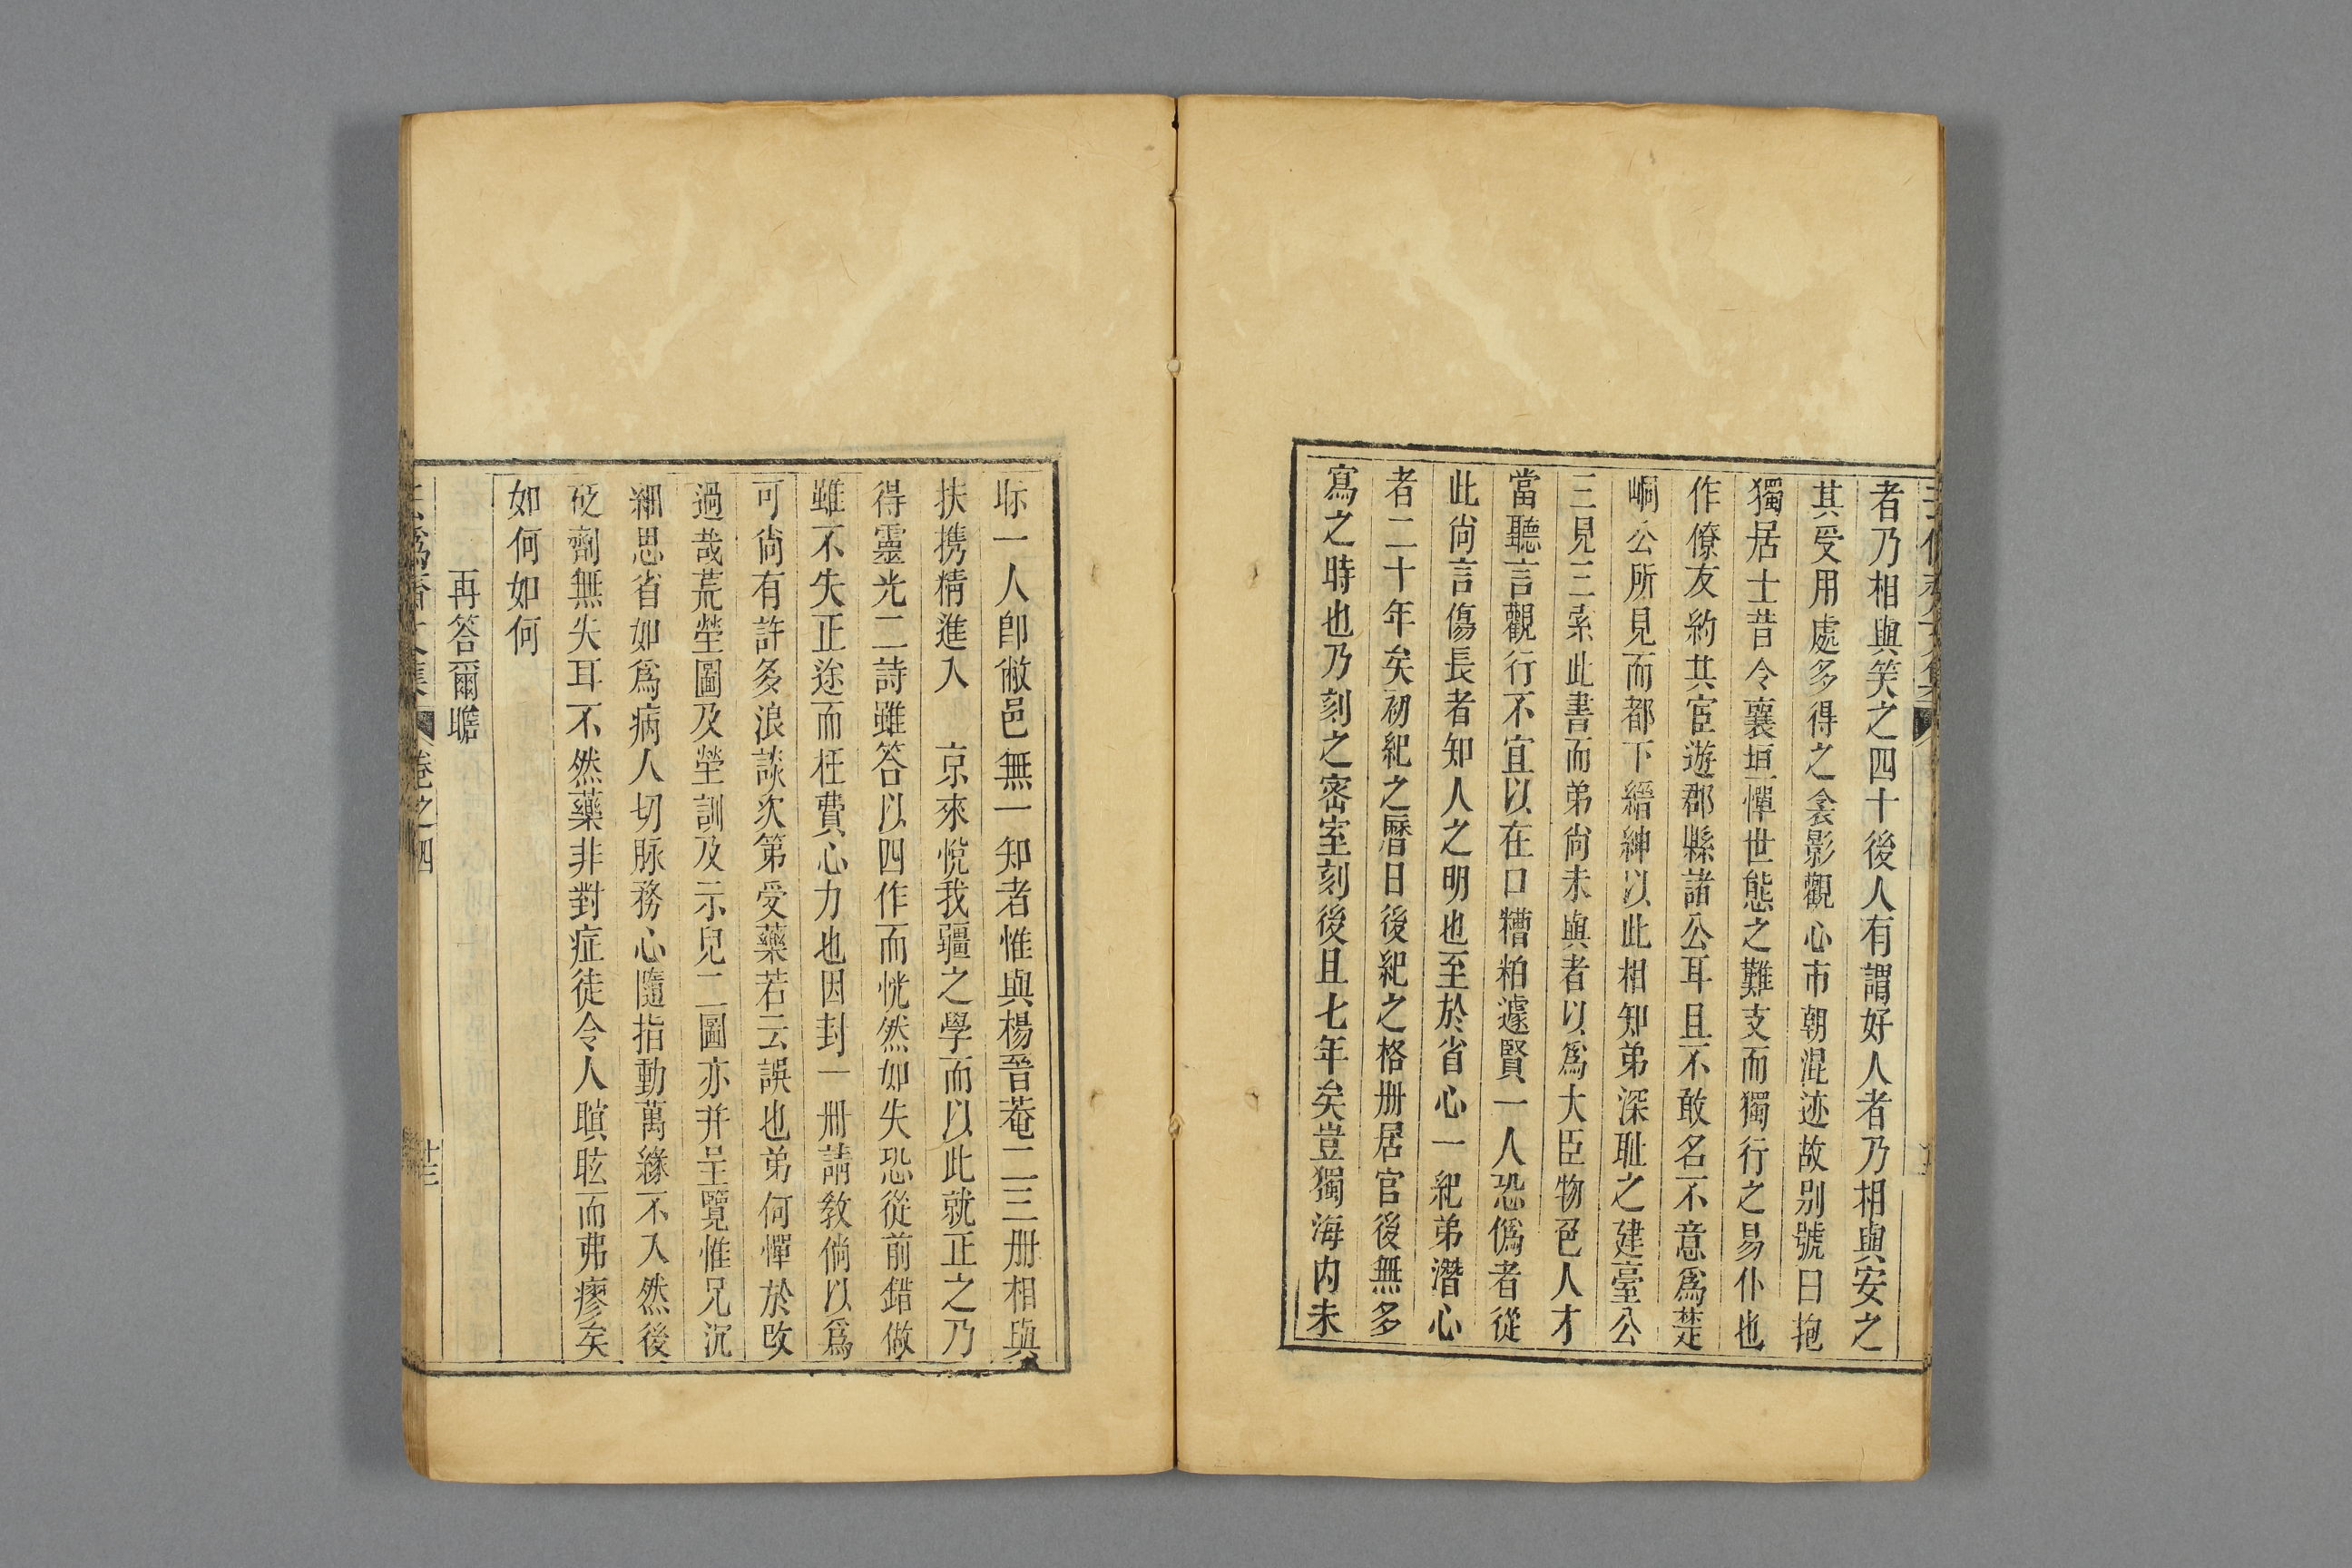 者乃相與笑之四十後人有謂好人者乃相與安之
其受用處多得之衾影觀心市朝混迹故别號曰抱
獨居士昔令襄垣憚世態之難支而獨行之易仆也
作僚友約其宦遊郡縣諸公耳且不敢名不意爲楚
峒公所見而都下縉紳以此相知弟深耻之建臺公
三見三索此書而弟尚未與者以爲大臣物色人才
當聽言觀行不宜以在口糟粕遽賢一人恐僞者從
此尚言傷長者知人之明也至於省心一紀弟潛心
者二十年矣初紀之曆日後紀之格册居官後無多
寫之時也乃刻之密室刻後且七年矣豈獨海内未
眎一人卽敝邑無一知者惟與楊晉菴二三册相與
扶携精進入　京來悅我疆之學而以此就正之乃
得靈光二詩雖答以四作而恍然如失恐從前錯做
雖不失正途而枉費心力也因封一册請敎倘以爲
可尚有許多浪談次第受藥若云誤也弟何憚於改
過哉荒塋圖及塋訓及示兒二圖亦并呈覽惟兄沉
細思省如爲病人切脉務心隨指動萬緣不入然後
砭劑無失耳不然藥非對症徒令人瞋眩而弗瘳矣
如何如何
再答爾瞻
卷之四